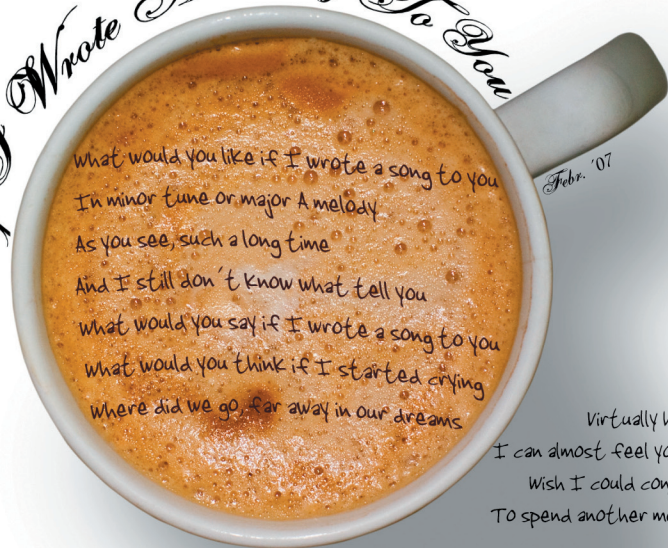 I Wrote To You
Febr. '07
What would you like if I wrote a song to you
In minor tune or major A melody
As you see, such a long time
And I still don't know what tell you
What would you say if I wrote a song to you
What would you think if I started crying
Where did we go, far away in our dreams
Virtually
I can almost feel
Wish I could
To spend another